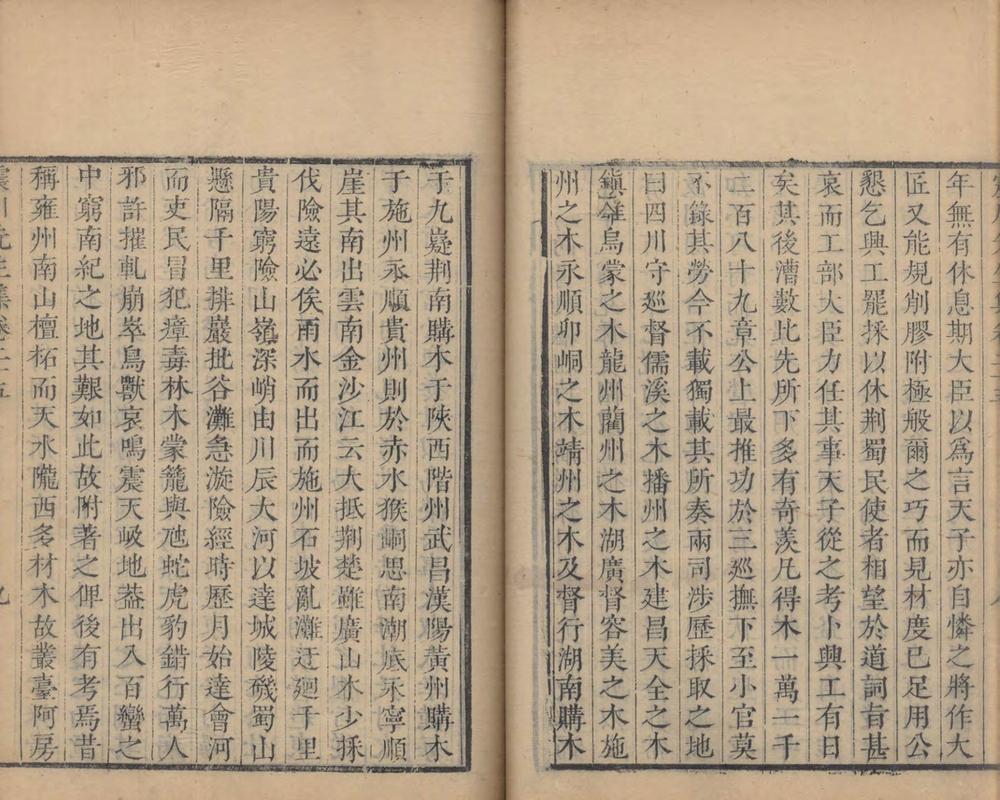 年無有休息期大臣以爲言天子亦自憐之將作大
匠又能規削膠附極般爾之巧而見材度已足用公
懇乞興工罷採以休荆蜀民使者相望於道詞旨甚
哀而工部大臣力任其事天子從之考卜興工有日
矣其後漕數比先所下多有奇羨凡得木一萬一千
二百八十九章公上最推功於三巡撫下至小官莫
不錄其勞今不載獨載其所奏兩司涉歷採取之地
曰四川守巡督儒溪之木播州之木建昌天全之木
鎮雄烏蒙之木龍州藺州之木湖廣督容美之木施
州之木永順卯峒之木靖州之木及督行湖南購木
于九嶷荆南購木于陜西階州武昌漢陽黃州購木
于施州永順貴州則於赤水猴峒思南潮底永寧順
崖其南出雲南金沙江云大抵荆楚雖廣山木少採
伐險遠必俟雨水而出而施州石坡亂灘迂廻千里
貴陽窮險山嶺深峭由川辰大河以達城陵磯蜀山
懸隔千里排巖批谷灘急漩險經時歷月始達會河
而吏民冒犯瘴毒林木蒙籠與虺蛇虎豹錯行萬人
邪許摧軋崩萃鳥獸哀鳴震天岋地葢出入百蠻之
中窮南紀之地其艱如此故附著之俾後有考焉昔
稱雍州南山檀柘而天水隴西多材木故叢臺阿房
震川先生集卷二十五
九